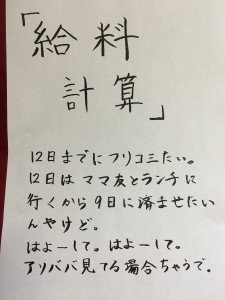 「給料
計算」
12日までにフリコミたい。
12日はママ友とランチに
行くから9日に済ませたい
んやけど。
はよーして。はよーして。
アリババ見てる場合ちゃうで。